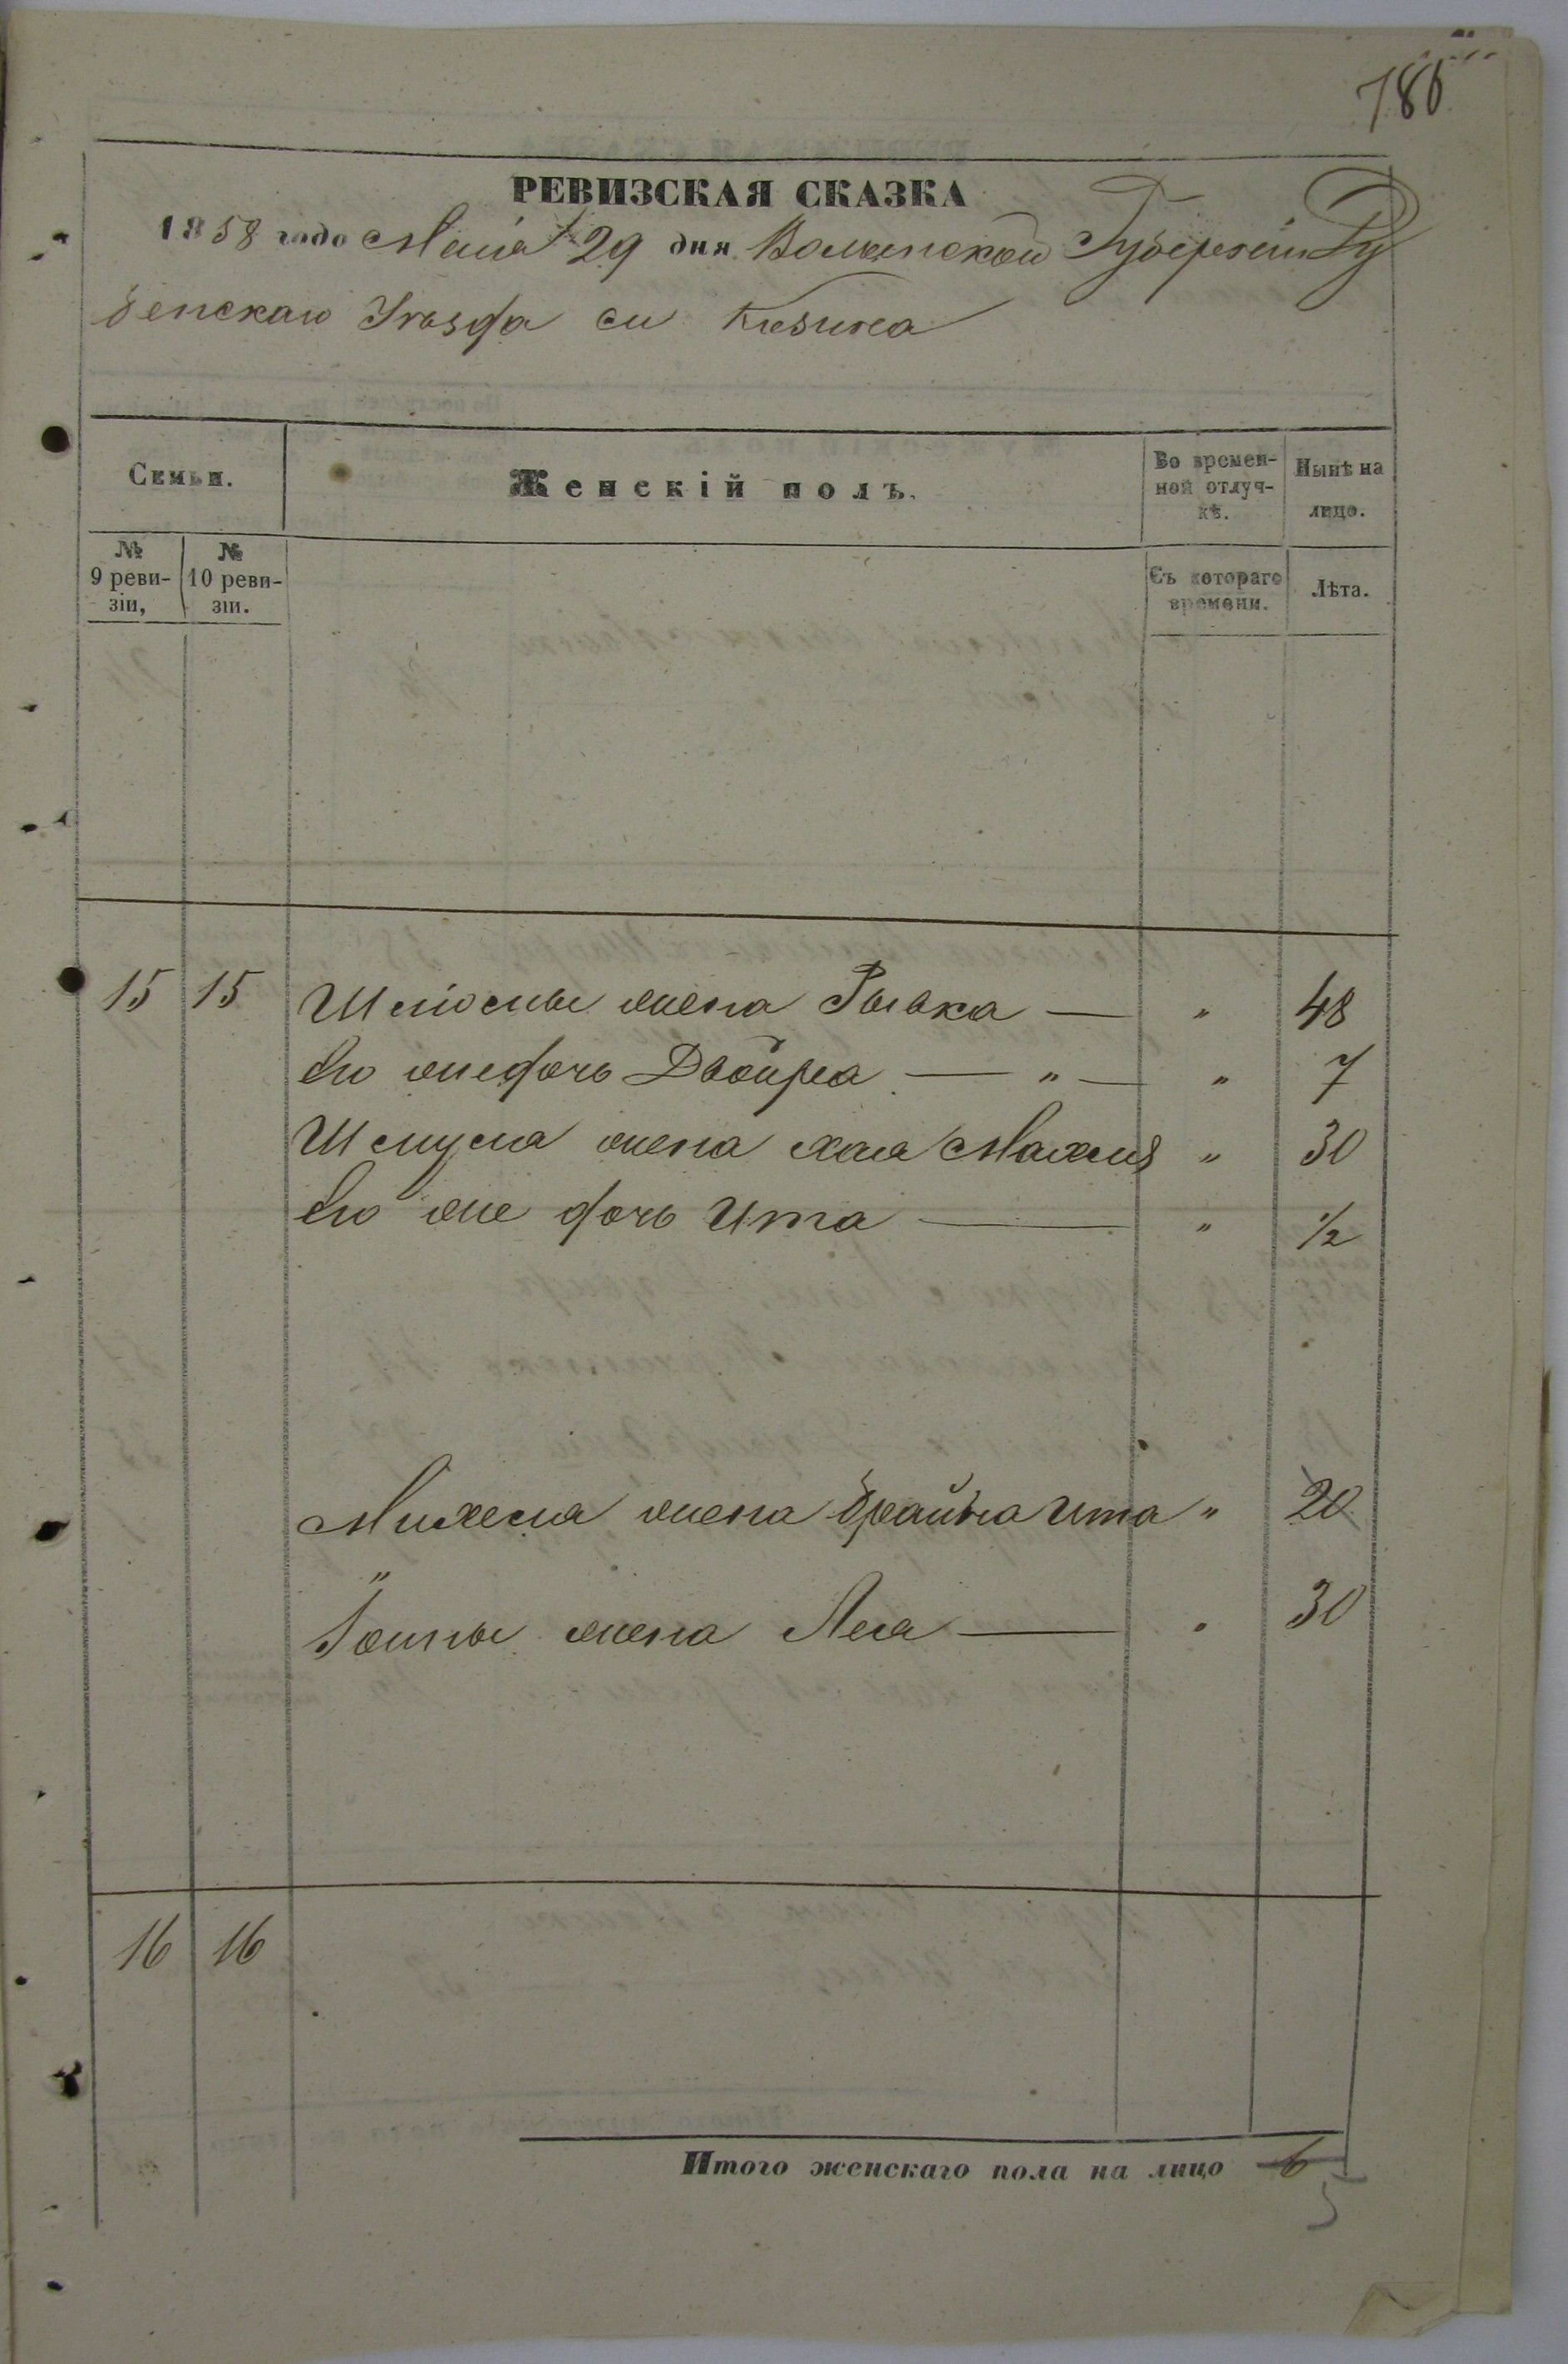 786
РЕВИЗСКАЯ СКАЗКА
1858 года Маія 29 дня Волынской Губерніи Ду
бенскаго Уѣзда
Семьи.
Женскій полъ.
Во времен-
ной отлуч-
кѣ.
Нынѣ на
лицо.
№
9 реви-
зіи,
№
10 реви-
зіи.
Съ котораго
времени.
Лѣта.
15 15 Шліомы жена Рывка — " 48
Его же дочь Двойра — " — " 7
Шмуля жена Хая Махля " 30
Его же дочь Ита — " 1/2
Михеля жена Брайна Ита " 20
"
Іойны жена Лея — " 30
16 16
Итого женскаго пола на лицо 6
5